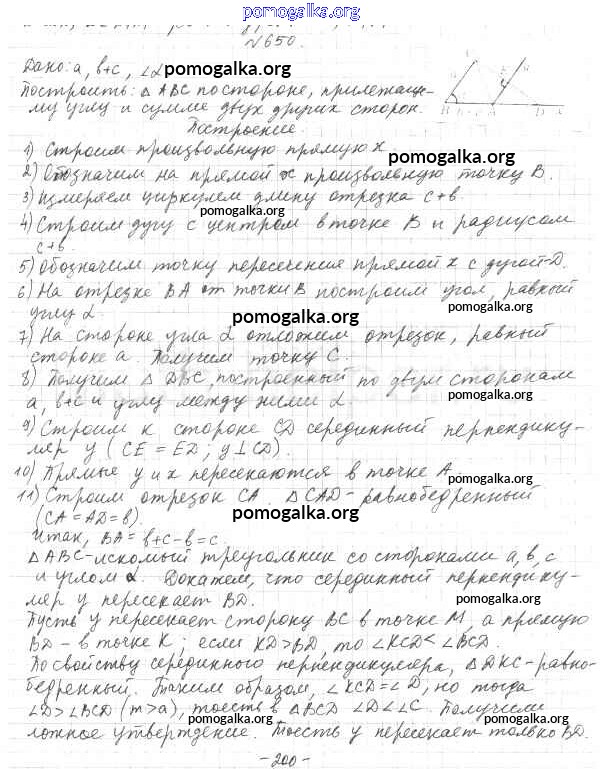 pomogalka.org
№650.
Дано: a, b+c, ∠α
pomogalka.org
Построить: △ABC по стороне, прилежаще-
му углу и сумме двух других сторон.
pomogalka.org
Построение.
1) Строим произвольную прямую x.
pomogalka.org
2) Обозначим на прямой x произвольную точку B.
3) Измеряем циркулем длину отрезка c+b.
pomogalka.org
4) Строим дугу с центром в точке B и радиусом
c+b.
pomogalka.org
5) Обозначим точку пересечения прямой x с дугой-D.
6) На отрезке BA от точки B построим угол, равный
углу α.
pomogalka.org
7) На стороне угла α отложим отрезок, равный
стороне a. Получим точку C.
pomogalka.org
8) Получим △DBC, построенный по двум сторонам
a, b+c и углу между ними α.
pomogalka.org
9) Строим к стороне CD серединный перпендику-
ляр y (CE = ED; y⊥CD).
pomogalka.org
10) Прямые y и x пересекаются в точке A.
pomogalka.org
11) Строим отрезок CA. △CAD-равнобедренный
(CA = AD = b).
pomogalka.org
Итак, BA = b+c-b=c.
△ABC-искомый треугольник со сторонами a, b, c
и углом α. Докажем, что серединный перпендику-
ляр y пересекает BD.
pomogalka.org
Пусть y пересекает сторону BC в точке M, а прямую
BD - в точке K; если KD>BD, то ∠KCD<∠BCD.
pomogalka.org
По свойству серединного перпендикуляра, △DKC-равно-
бедренный. Таким образом, ∠KCD=∠D; но тогда
pomogalka.org
∠D>∠BCD (m>a), то есть в △BCD ∠D<∠C. Получили
pomogalka.org
ложное утверждение. То есть y пересекает только BD.
-200-
pomogalka.org